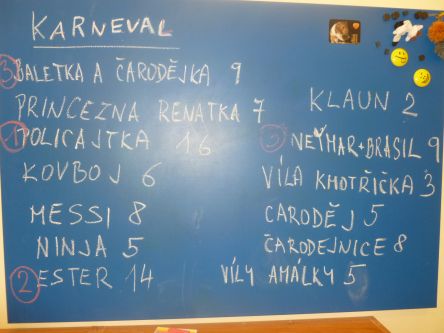 KARNEVAL
3 BALETKA A ČARODĚJKA 9
PRINCEZNA RENATKA 7
1 POLICAJTKA 16
KOVBOJ 6
MESSI 8
NINJA 5
2 ESTER 14
KLAUN 2
3 NEYMAR + BRASIL 9
VÍLA KMOTŘIČKA 3
ČARODĚJ 5
ČARODEJNICE 8
VÍLY AMÁLKY 5